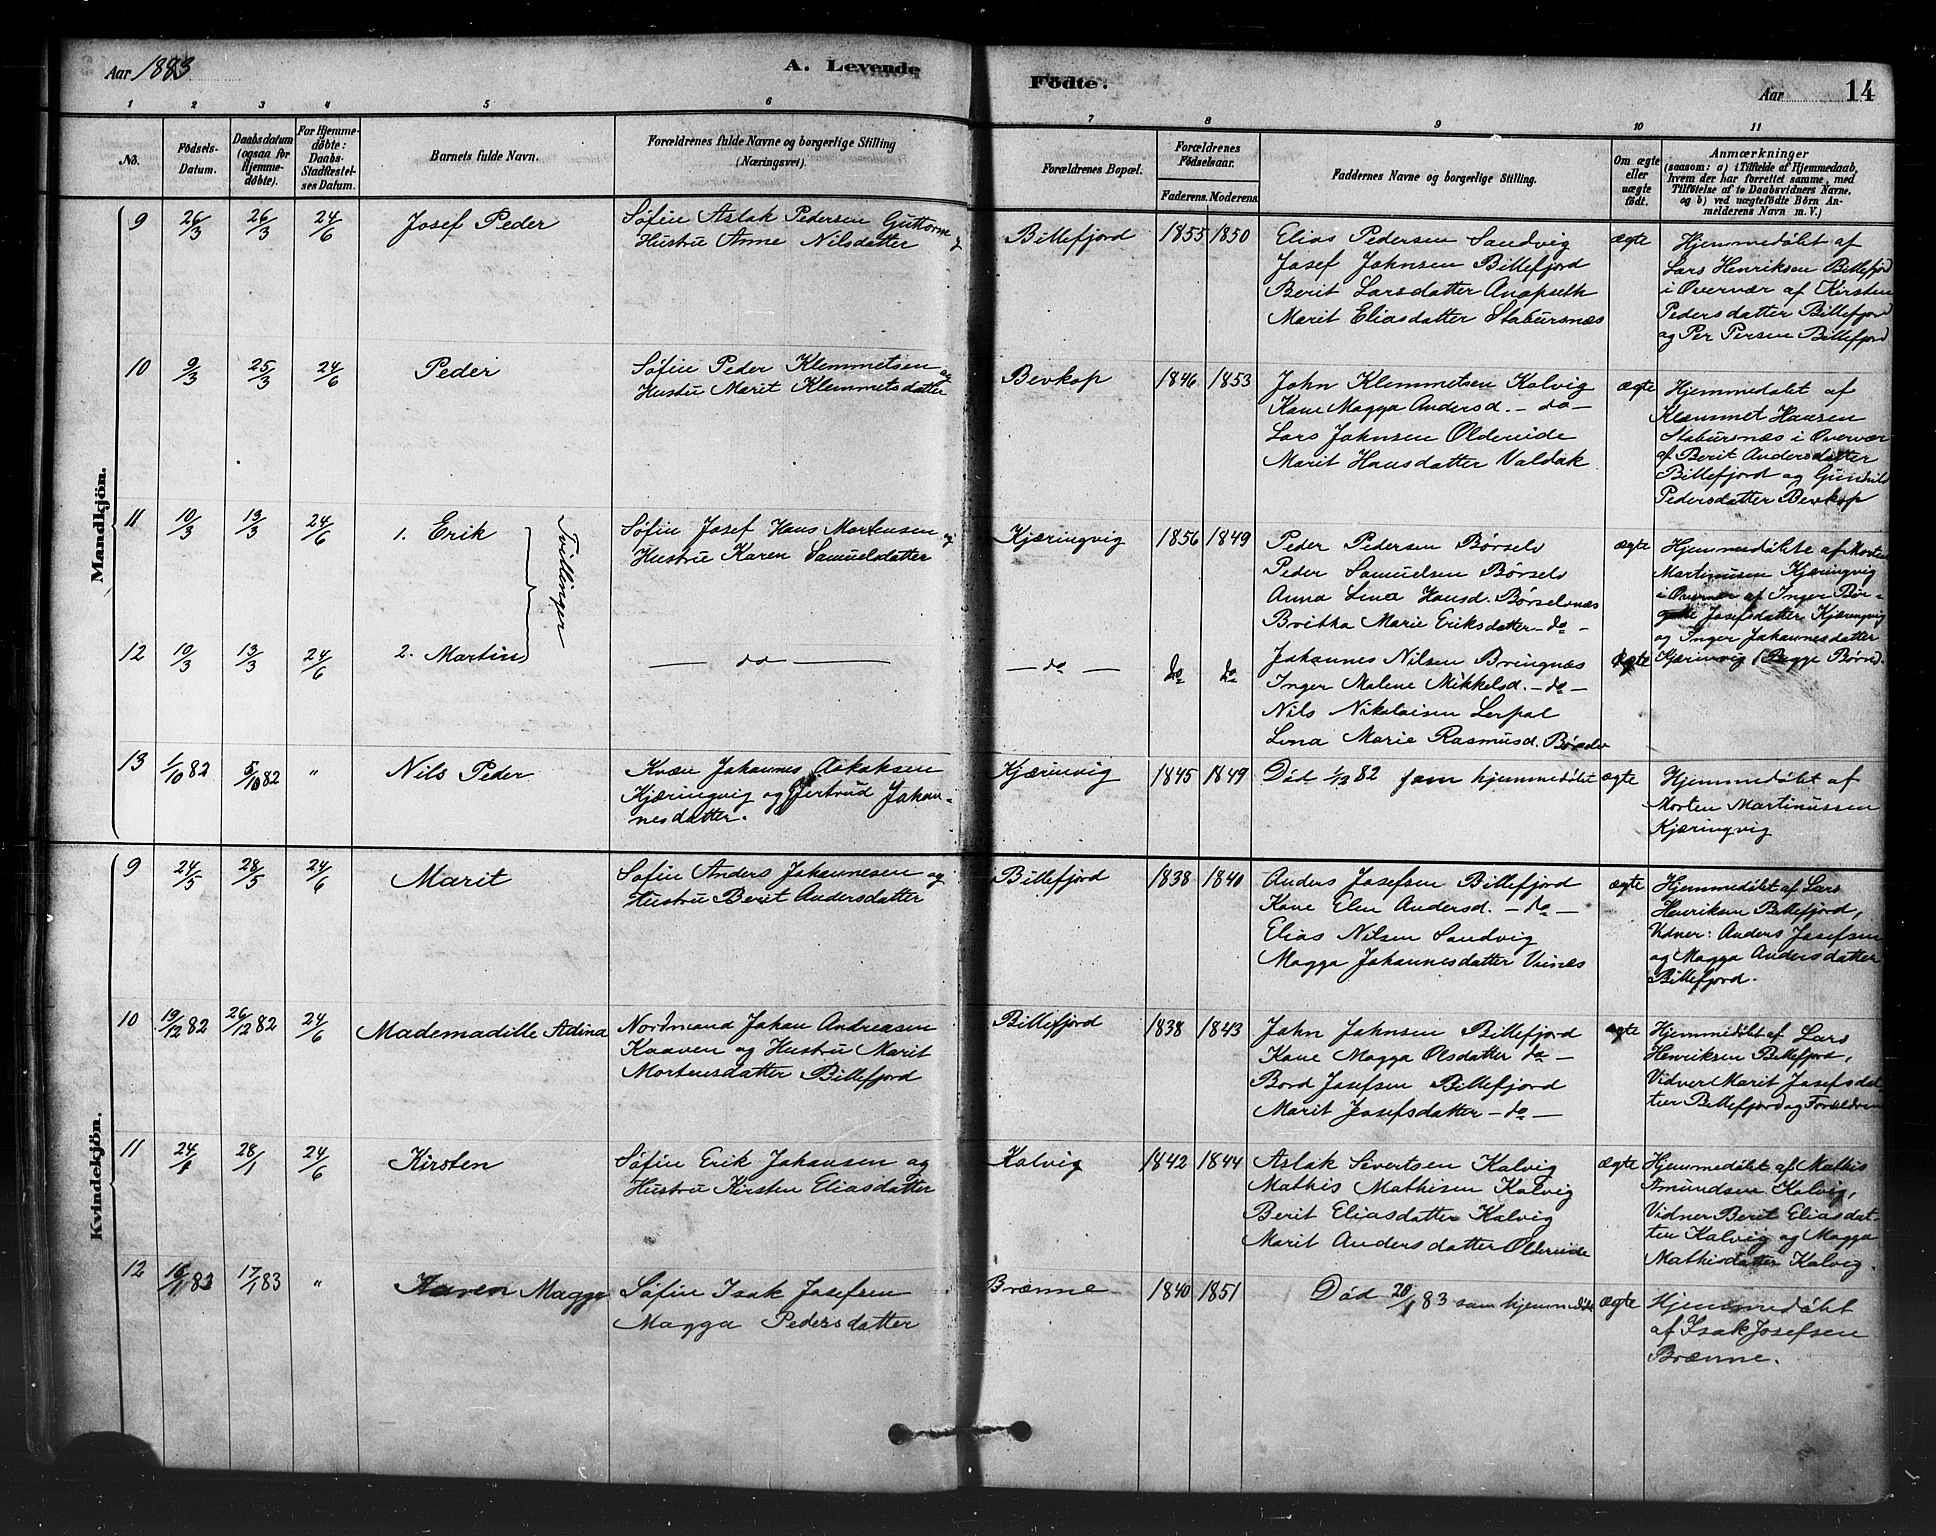 Aar 1883
A. Levende
Födte.
Aar
14
1 2 3 4 5 6 7 8 9 10 11
No.
Födsels-Datum.
Daabsdatum (ogsaa for Hjemmedøbte).
For Hjemmedøbte: Daabs-Stadfæstelses Datum.
Barnets fulde Navn.
Forældrenes fulde Navne og borgerlige Stilling (Næringsvei).
Forældrenes Bopæl.
Forældrenes Födselsaar.
Faderens. Moderens.
Faddernes Navne og borgerlige Stilling.
Om ægte eller uægte födt.
Anmærkninger
(saasom: a) i Tilfælde af Hjemmedaab, hvem der har forrettet samme, med Tilföielse af to Daabsvidners Navne, og b) ved uægtefödte Börn Anmelderens Navn m. V.)
Mandkjön.
9 26/3 26/3 24/6 Josef Peder
Søfin Aslak Pedersen Guttorm
Hustru Anne Nilsdatter
Billefjord 1855 1850
Elias Pedersen Sandvig
Josef Johnsen Billefjord
Berit Larsdatter
Marit Eliasdatter Stabursnæs
ægte
Hjemmedøbt af
Lars Henriksen Billefjord
i Overvær af Kirsten
Pedersdatter Billefjord
og Per Persen Billefjord
10 9/3 25/3 24/6 Peder
Søfin Peder Klemmetsen og
Hustru Marit Klemmetsdatter
Bevkop 1846 1853
John Klemmetsen Kolvig
Kone Magga Andersd. - do -
Lars Johnsen Oldereide
Marit Hansdatter Valdak
ægte
Hjemmedøbt af
Klemmet Hansen
Stabursnæs i Overvær
af Berit Andersdatter
Billefjord og Gunhild
Pedersdatter Bevkop
11 10/3 13/3 24/6 1. Erik
Tvillinger
Søfin Josef Hans Mortensen og
Hustru Karen Samuelsdatter
Kjæringvig 1856 1849
Peder Pedersen Børselv
Peder Samuelsen Børselv
Anna Lina Hansd. Børselvnæs
Britha Marie Eriksdatter - do -
ægte
Hjemmedøbte af Morten
Martinusen Kjæringvig
i Overvær af Inger
Josefsdatter Kjæringvig
og Inger Johannesdatter
Kjæringvig (Begge Børn).
12 10/3 13/3 24/6 2. Martin
- do -
- do - do do
Johannes Nilsen Bringnæs
Inger Malene Mikkelsd. - do -
Nils Nikolaisen Lerpol
Lina Marie Rasmusd. Børselv
ægte
13 1/10 82 5/10 82 " Nils Peder
Kvæn Johannes
Kjæringvig og Gertrud Johan-
nesdatter.
Kjæringvig 1845 1849
Død 82 som hjemmedøbt
ægte
Hjemmedøbt af
Morten Martinussen
Kjæringvig
Kvindekjön.
9 24/5 28/5 24/6 Marit
Søfin Anders Johannesen og
Hustru Berit Andersdatter
Billefjord 1838 1840
Anders Josefsen Billefjord
Kone Elen Andersd. - do -
Elias Nilsen Sandvig
Magga Johannesdatter Viinæs
ægte
Hjemmedøbt af Lars
Henriksen Billefjord,
Vidner: Anders Josefsen
og Magga Andersdatter
Billefjord.
10 19/12 82 26/12 82 24/6 Mademadille Adina
Nordmand Johan Andreasen
Kaaven og Hustru Marit
Mortensdatter Billefjord
Billefjord 1838 1843
John Johnsen Billefjord
Kone Magga Olsdatter do -
Bord Josefsen Billefjord
Marit Josefsdatter - do -
ægte
Hjemmedøbt af Lars
Henriksen Billefjord,
Vidner Marit Josefsdat-
ter Billefjord og Forældrene
11 24/1 28/1 24/6 Kirsten
Søfin Erik Johansen og
Hustru Kirsten Eliasdatter
Kolvig 1842 1844
Aslak Sivertsen Kolvig
Mathis Mathisen Kolvig
Berit Eliasdatter Kolvig
Marit Andersdatter Oldereide
ægte
Hjemmedøbt af Mathis
Amundsen Kolvig,
Vidner Berit Eliasdat-
ter Kolvig og Magga
Mathisdatter Kolvig.
12 16/1 83 17/1 83 " Karen Magga
Søfin Isak Josefsen
Magga Pedersdatter
Brænne 1840 1851
Død 20/1 83 som hjemmedøbt
ægte
Hjemmedøbt
af Isak Josefsen
Brænne.